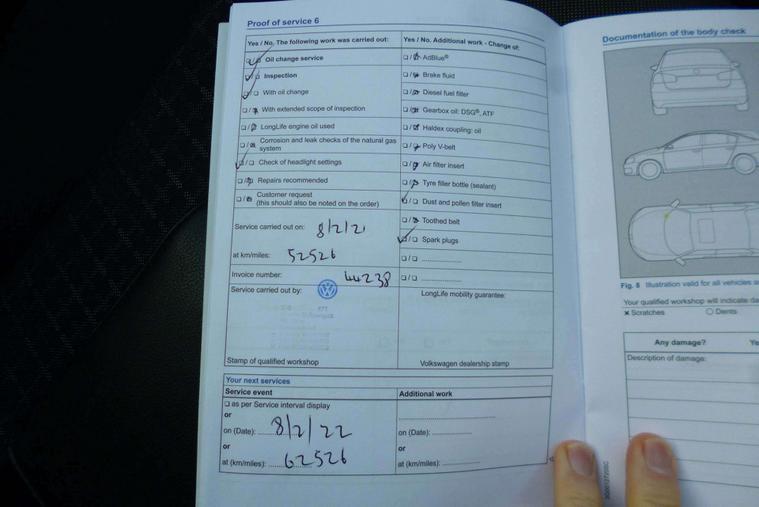 Proof of service 6
Yes / No. The following work was carried out:
Oil change service
Inspection
With oil change
With extended scope of inspection
LongLife engine oil used
Corrosion and leak checks of the natural gas
system
Check of headlight settings
Repairs recommended
Customer request
(this should also be noted on the order)
Yes / No. Additional work - Change of:
AdBlue®
Brake fluid
Diesel fuel filter
Gearbox oil: DSG®, ATF
Haldex coupling: oil
Poly V-belt
Air filter insert
Tyre filler bottle (sealant)
Dust and pollen filter insert
Toothed belt
Spark plugs
Service carried out on: 8/2/21
at km/miles: 52526
Invoice number: 44238
Service carried out by:
LongLife mobility guarantee:
Stamp of qualified workshop
Volkswagen dealership stamp
Your next services
Service event
as per Service interval display
or
on (Date): 8/2/22
or
at (km/miles): 62526
Additional work
on (Date):
or
at (km/miles):
Documentation of the body check
Fig. 8 Illustration valid for all vehicles
Your qualified workshop will indicate
Scratches
Dents
Any damage?
Description of damage: